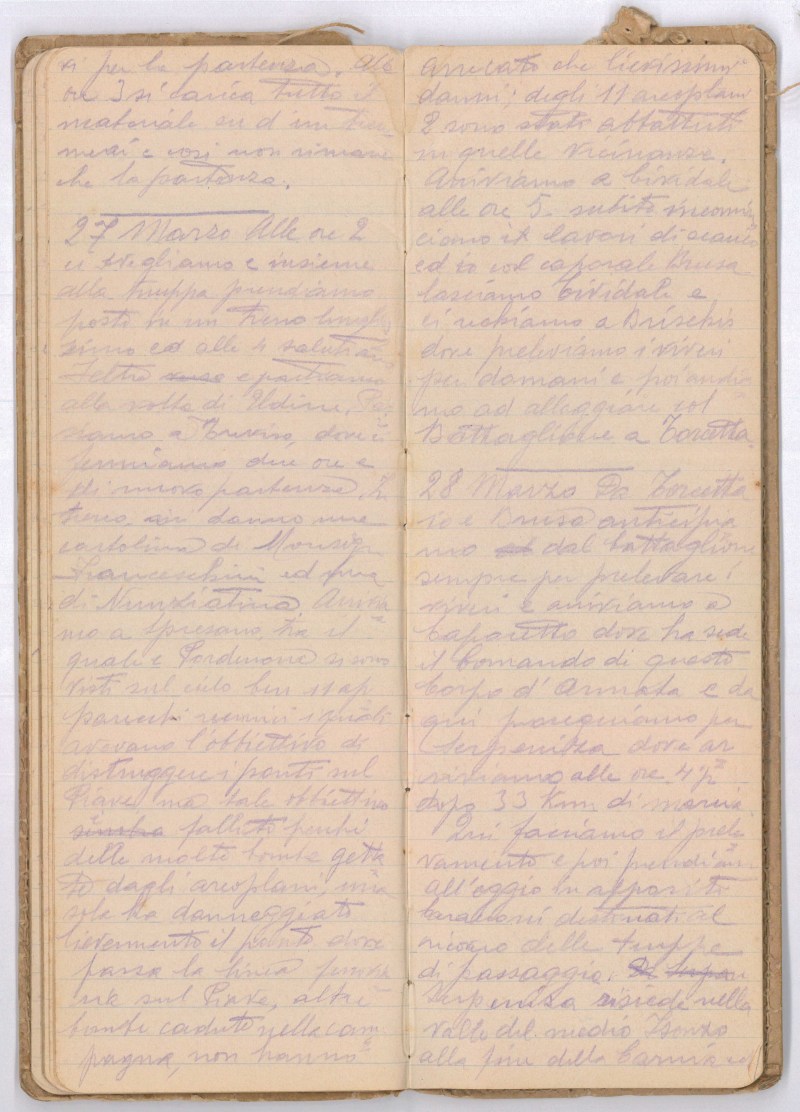 vi per la partenza. Alle
ore 3 si carica tutto il
materiale su d'un
e così non rimane
che la partenza.
27 Marzo Alle ore 2
ci svegliamo e insieme
alla truppa prendiamo
posto in un treno lunghis
simo ed alle 4 salutiamo
Feltre e partiamo
alla volta di Udine. Pas
siamo a Treviso, dove ci
fermiamo due ore e
di nuovo partenza. In
treno mi danno una
cartolina di Monsign
Franceschini ed una
di Nunziatina. Arrivia
mo a Spresano, tra il
quale e Pordenone si sono
visti sul cielo ben 11 ap
parecchi nemici i quali
avevano l'obbiettivo di
distruggere i ponti sul
Piave ma tale obbiettivo
sembra fallito perchè
delle molte bombe getta
te dagli areoplani, una
sola ha danneggiato
lievemente il ponte dove
passa la linea ferrovia
ria sul Piave, altre
bombe cadute nella cam
pagna, non hanno
arrecato che lievissimi
danni; degli 11 areoplani
2 sono stati abbattuti
in quelle vicinanze.
Arriviamo a Cividale
alle ore 5. subito incomin
ciamo i lavori di scarico
ed io col caporale Brusa
lasciamo Cividale e
ci rechiamo a Brischis
dove preleviamo i viveri
per domani e poi andia
mo ad alloggiare col
Battaglione a Torcetta.
28 Marzo Da Torcetta
io e Brusa anticipia
mo dal battaglione
sempre per prelevare i
viveri e arriviamo a
Caporetto dove ha sede
il Comando di questo
Corpo d'Armata e da
qui proseguiamo per
Serpenizza dove ar
riviamo alle ore 4 ½
dopo 33 Km di marcia.
Qui facciamo il prele
vamento e poi prendiamo
alloggio in apposito
baraconi destinati al
ricovero delle truppe
di passaggio.
Serpenizza risiede nella
valle del medio Isonzo
alla fine della Carnia ed